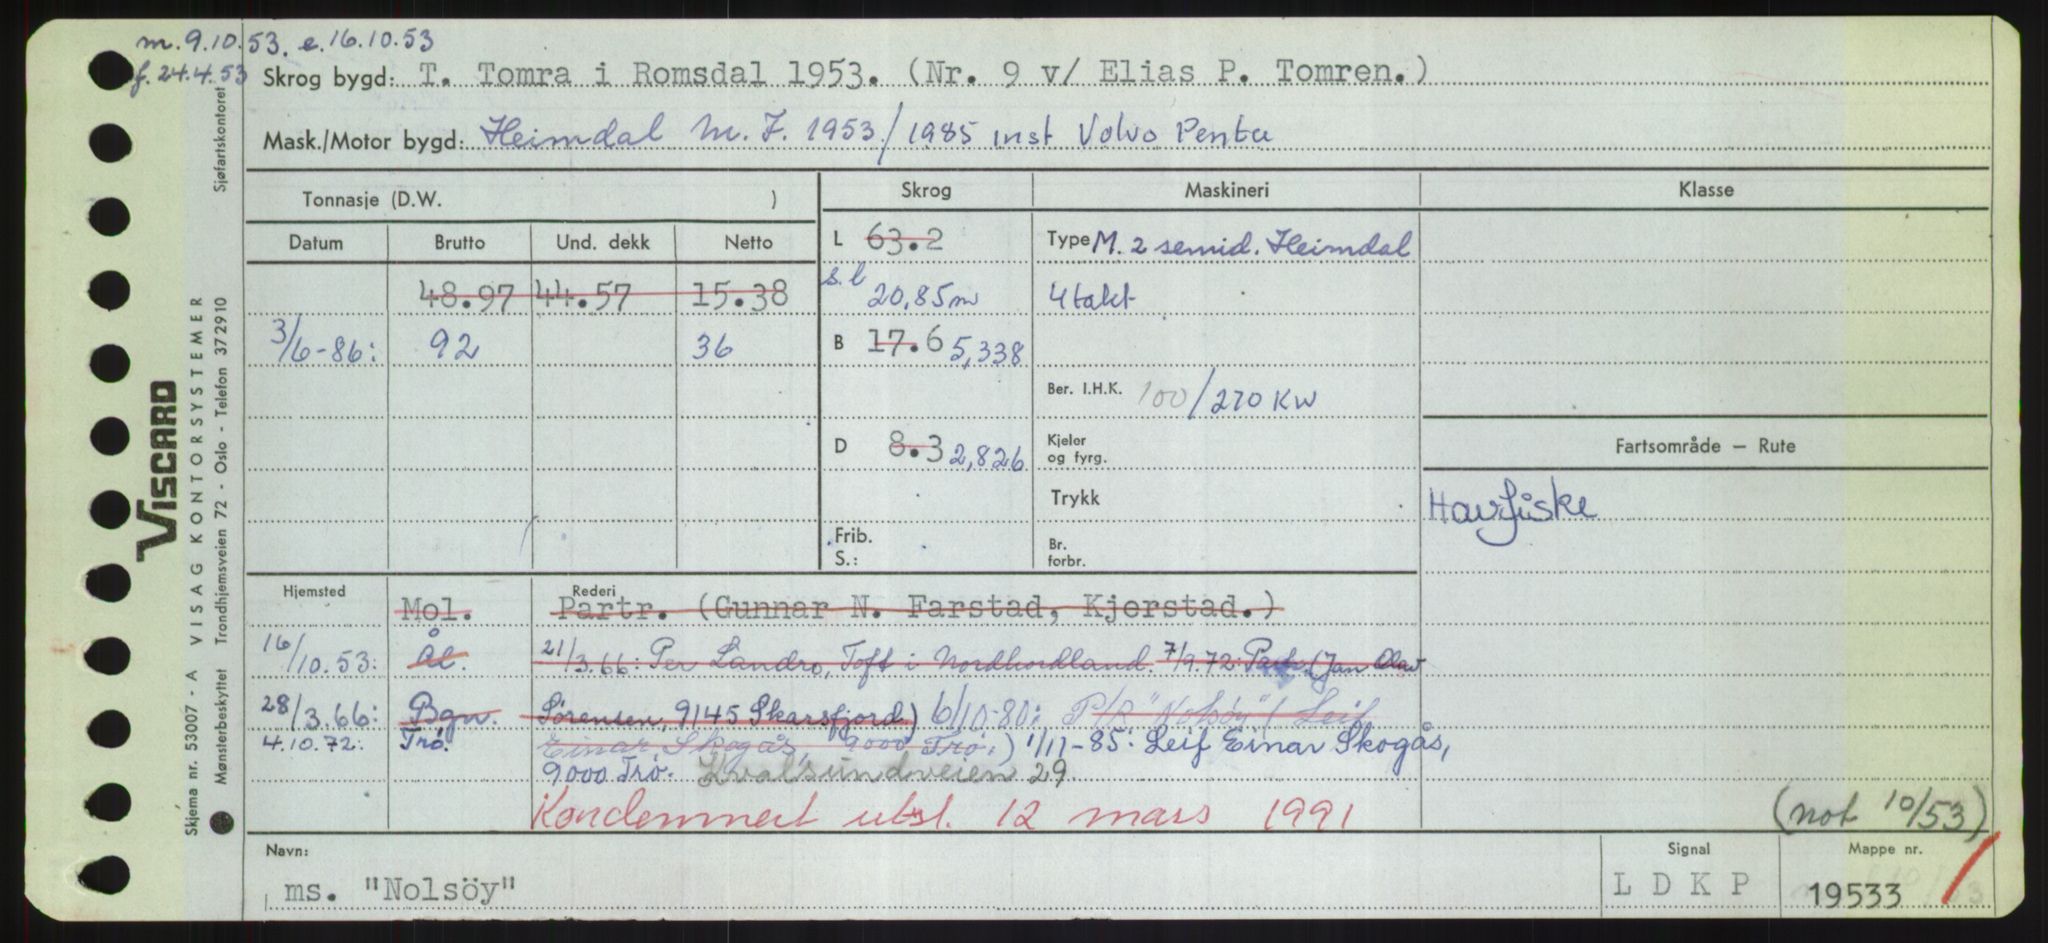 m. 9.10.53. e. 16.10.53
f. 24.4.53
Skrog bygd: T. Tomra i Romsdal 1953. (Nr. 9 v/ Elias P. Tomren.)
Mask./Motor bygd: Heimdal M. F. 1953 / 1985 inst Volvo Penta
Tonnasje (D.W. )
Skrog
Maskineri
Klasse
Datum Brutto Und. dekk Netto
L 63.2
Type M. 2 semid. Heimdal
48.97 44.57 15.38
s.l 20,85m
4takt
3/6-86: 92 36
B 17.6 5,338
Ber. I.H.K. 100/270 KW
D 8.3 2,826
Kjeler og fyrg.
Fartsområde – Rute
Trykk
Havfiske
Frib. S.:
Br. forbr.
Hjemsted Rederi
Mol. Partr. (Gunnar N. Farstad, Kjerstad.)
16/10.53: Ål. 21/3.66: Per Landro, Toft i Nordhordland. 7/9.72: Partr. (Jan Olav
28/3.66: Bgn. Sörensen, 9145 Skarsfjord) 6/10-80: P/R "Nolsöy" ( Leif
4.10.72: Trö. Einar Skogås, 9000 Trö.) 1/11-85: Leif Einar Skogås,
9000 Trö. Kvalsundveien 29.
Kondemnert utsl. 12 mars 1991
(not 10/53)
Navn: ms. "Nolsöy"
Signal LDKP
Mappe nr. 19533
VISCARD
Skjema nr. 53007 - A VISAG KONTORSYSTEMER
Mønsterbeskyttet Trondhjemsveien 72 - Oslo - Telefon 372910
Sjøfartskontoret